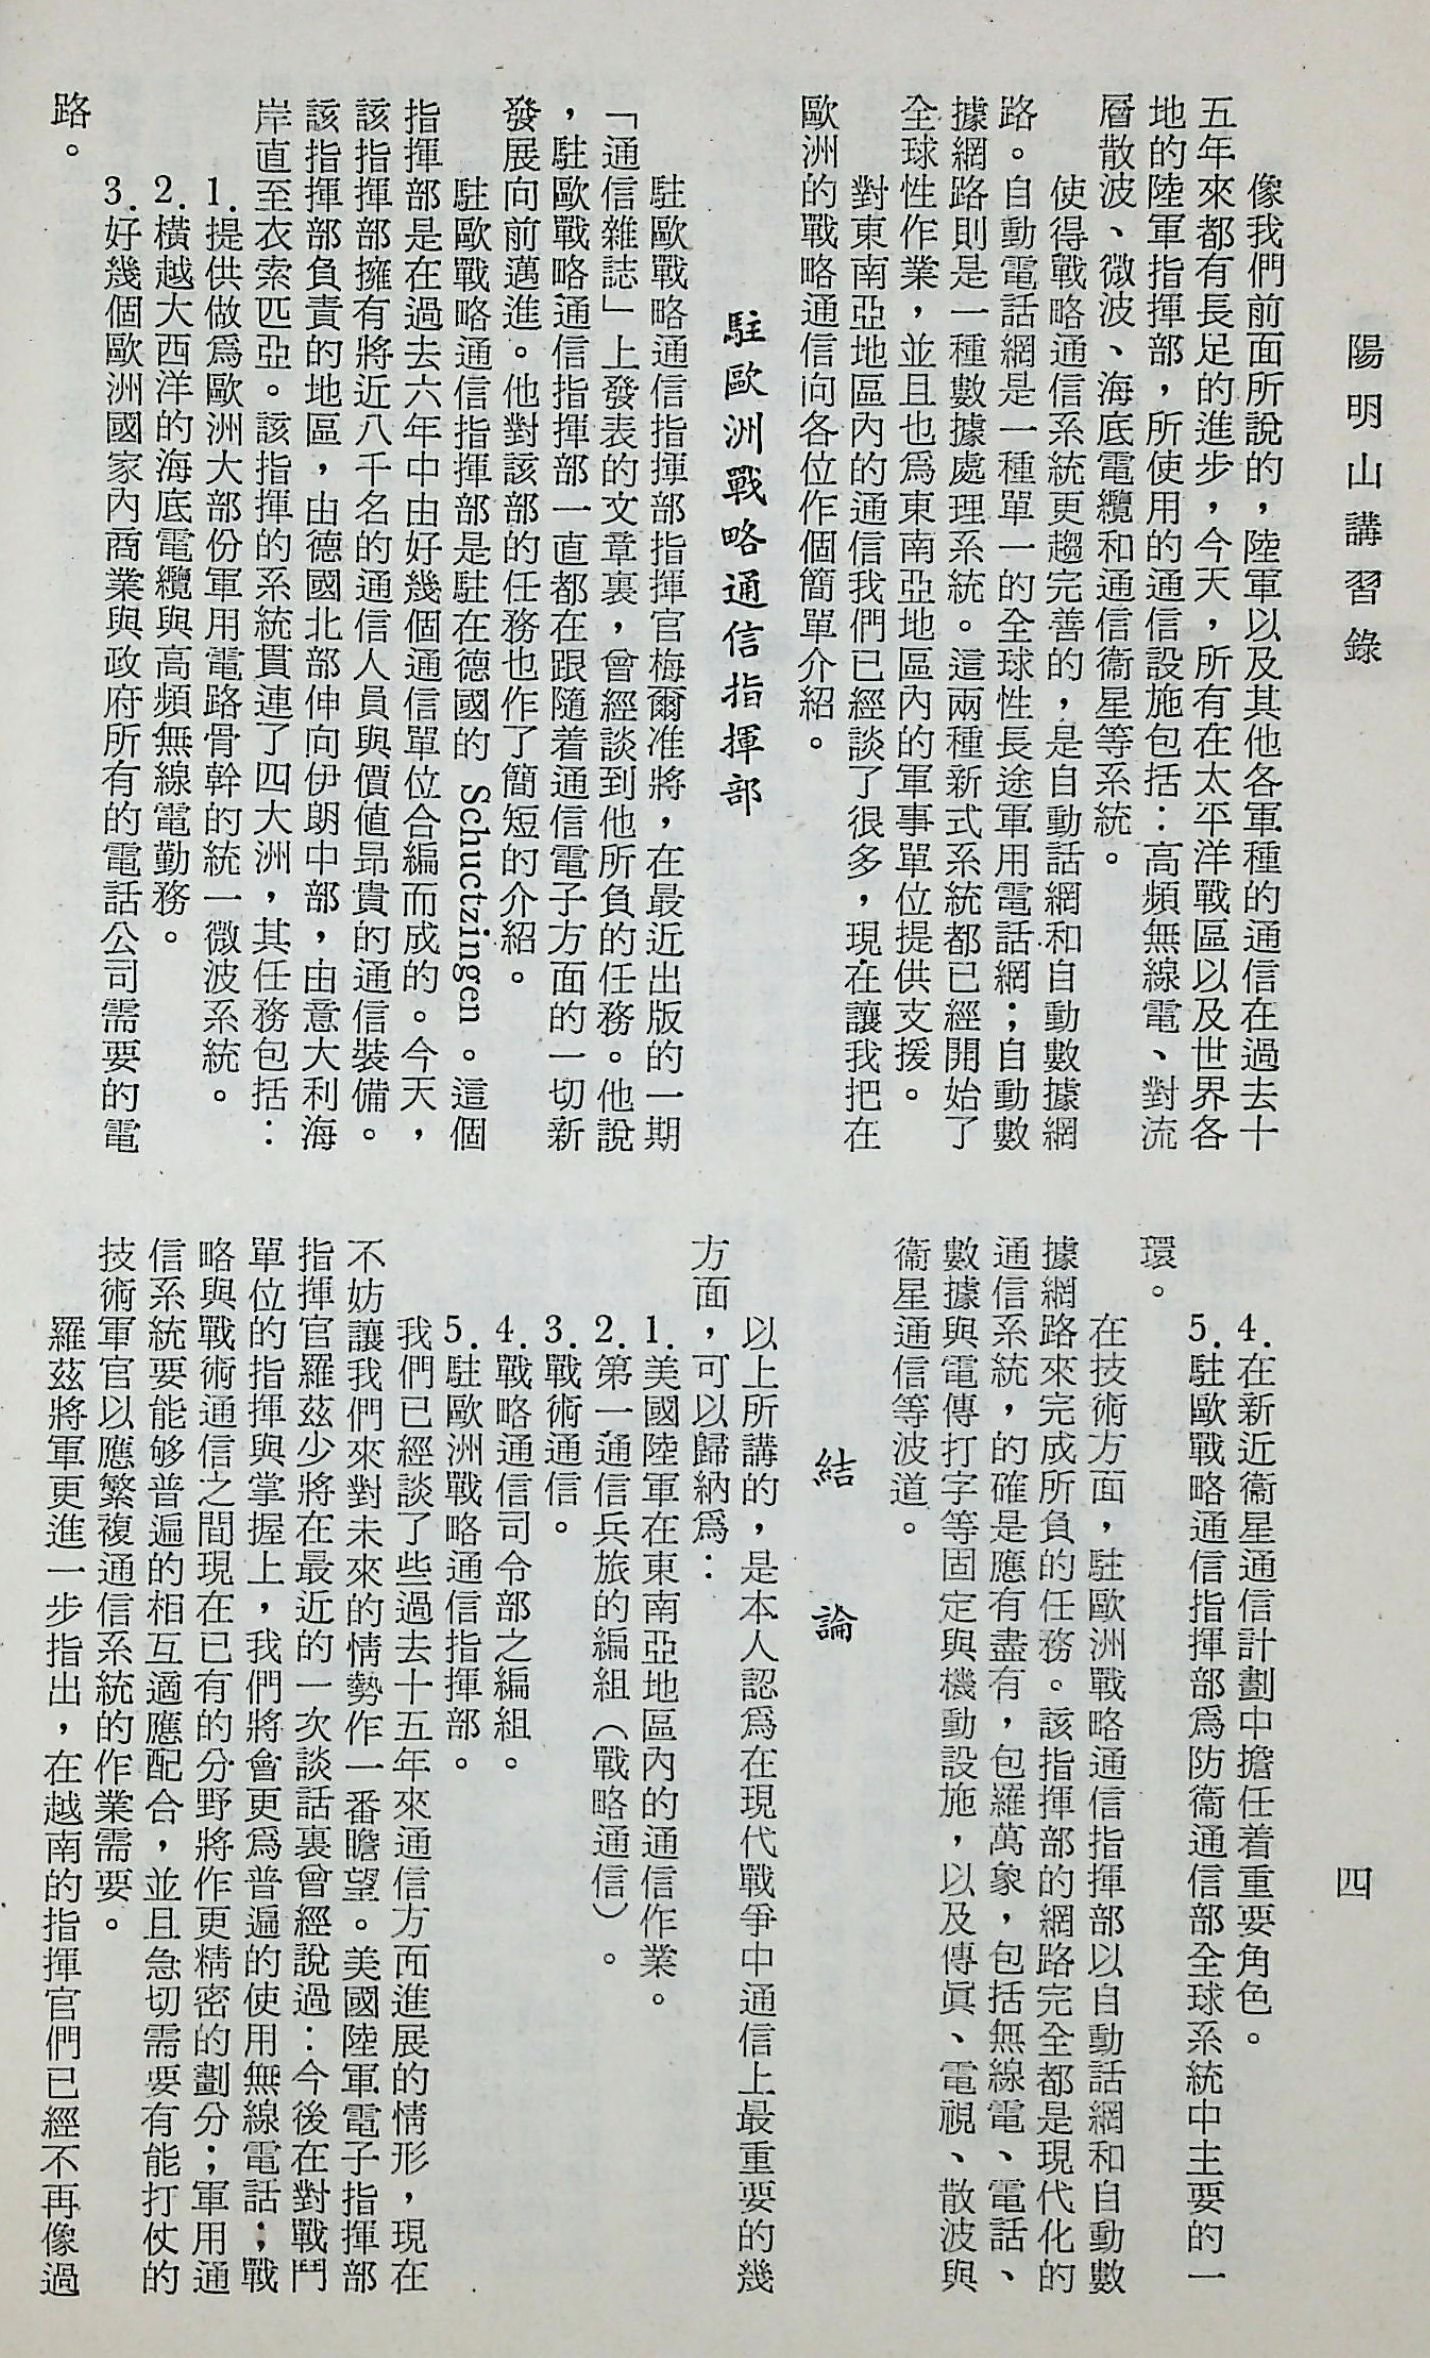 陽明山講習錄
四
像我們前面所說的，陸軍以及其他各軍種的通信在過去十
五年來都有長足的進步，今天，所有在太平洋戰區以及世界各
地的陸軍指揮部，所使用的通信設施包括：高頻無線電、對流
層散波、微波、海底電纜和通信衞星等系統。
使得戰略通信系統更趨完善的，是自動話網和自動數據網
路。自動電話網是一種單一的全球性長途軍用電話網；自動數
據網路則是一種數據處理系統。這兩種新式系統都已經開始了
全球性作業，並且也爲東南亞地區內的軍事單位提供支援。
對東南亞地區內的通信我們已經談了很多，現在讓我把在
歐洲的戰略通信向各位作個簡單介紹。
駐歐洲戰略通信指揮部
駐歐戰略通信指揮部指揮官梅爾准將，在最近出版的一期
「通信雜誌」上發表的文章裏，曾經談到他所負的任務。他說
，駐歐戰略通信指揮部一直都在跟隨着通信電子方面的一切新
發展向前邁進。他對該部的任務也作了簡短的介紹。
駐歐戰略通信指揮部是駐在德國的 Schuctzingen 。這個
指揮部是在過去六年中由好幾個通信單位合編而成的。今天，
該指揮部擁有將近八千名的通信人員與價值昂貴的通信裝備。
該指揮部負責的地區，由德國北部伸向伊朗中部，由意大利海
岸直至衣索匹亞。該指揮的系統貫連了四大洲，其任務包括：
1.提供做爲歐洲大部份軍用電路骨幹的統一微波系統。
2.橫越大西洋的海底電纜與高頻無線電勤務。
3.好幾個歐洲國家內商業與政府所有的電話公司需要的電
路。
4.在新近衞星通信計劃中擔任着重要角色。
5.駐歐戰略通信指揮部爲防衞通信部全球系統中主要的一
環。
在技術方面，駐歐洲戰略通信指揮部以自動話網和自動數
據網路來完成所負的任務。該指揮部的網路完全都是現代化的
通信系統，的確是應有盡有，包羅萬象，包括無線電、電話、
數據與電傳打字等固定與機動設施，以及傳眞、電視、散波與
衞星通信等波道。
結論
以上所講的，是本人認爲在現代戰爭中通信上最重要的幾
方面，可以歸納爲：
1.美國陸軍在東南亞地區內的通信作業。
2.第一通信兵旅的編組（戰略通信）。
3.戰術通信。
4.戰略通信司令部之編組。
5.駐歐洲戰略通信指揮部。
我們已經談了些過去十五年來通信方面進展的情形，現在
不妨讓我們來對未來的情勢作一番瞻望。美國陸軍電子指揮部
指揮官羅茲少將在最近的一次談話裏曾經說過：今後在對戰鬥
單位的指揮與掌握上，我們將會更爲普遍的使用無線電話；戰
略與戰術通信之間現在已有的分野將作更精密的劃分；軍用通
信系統要能够普遍的相互適應配合，並且急切需要有能打仗的
技術軍官以應繁複通信系統的作業需要。
羅茲將軍更進一步指出，在越南的指揮官們已經不再像過